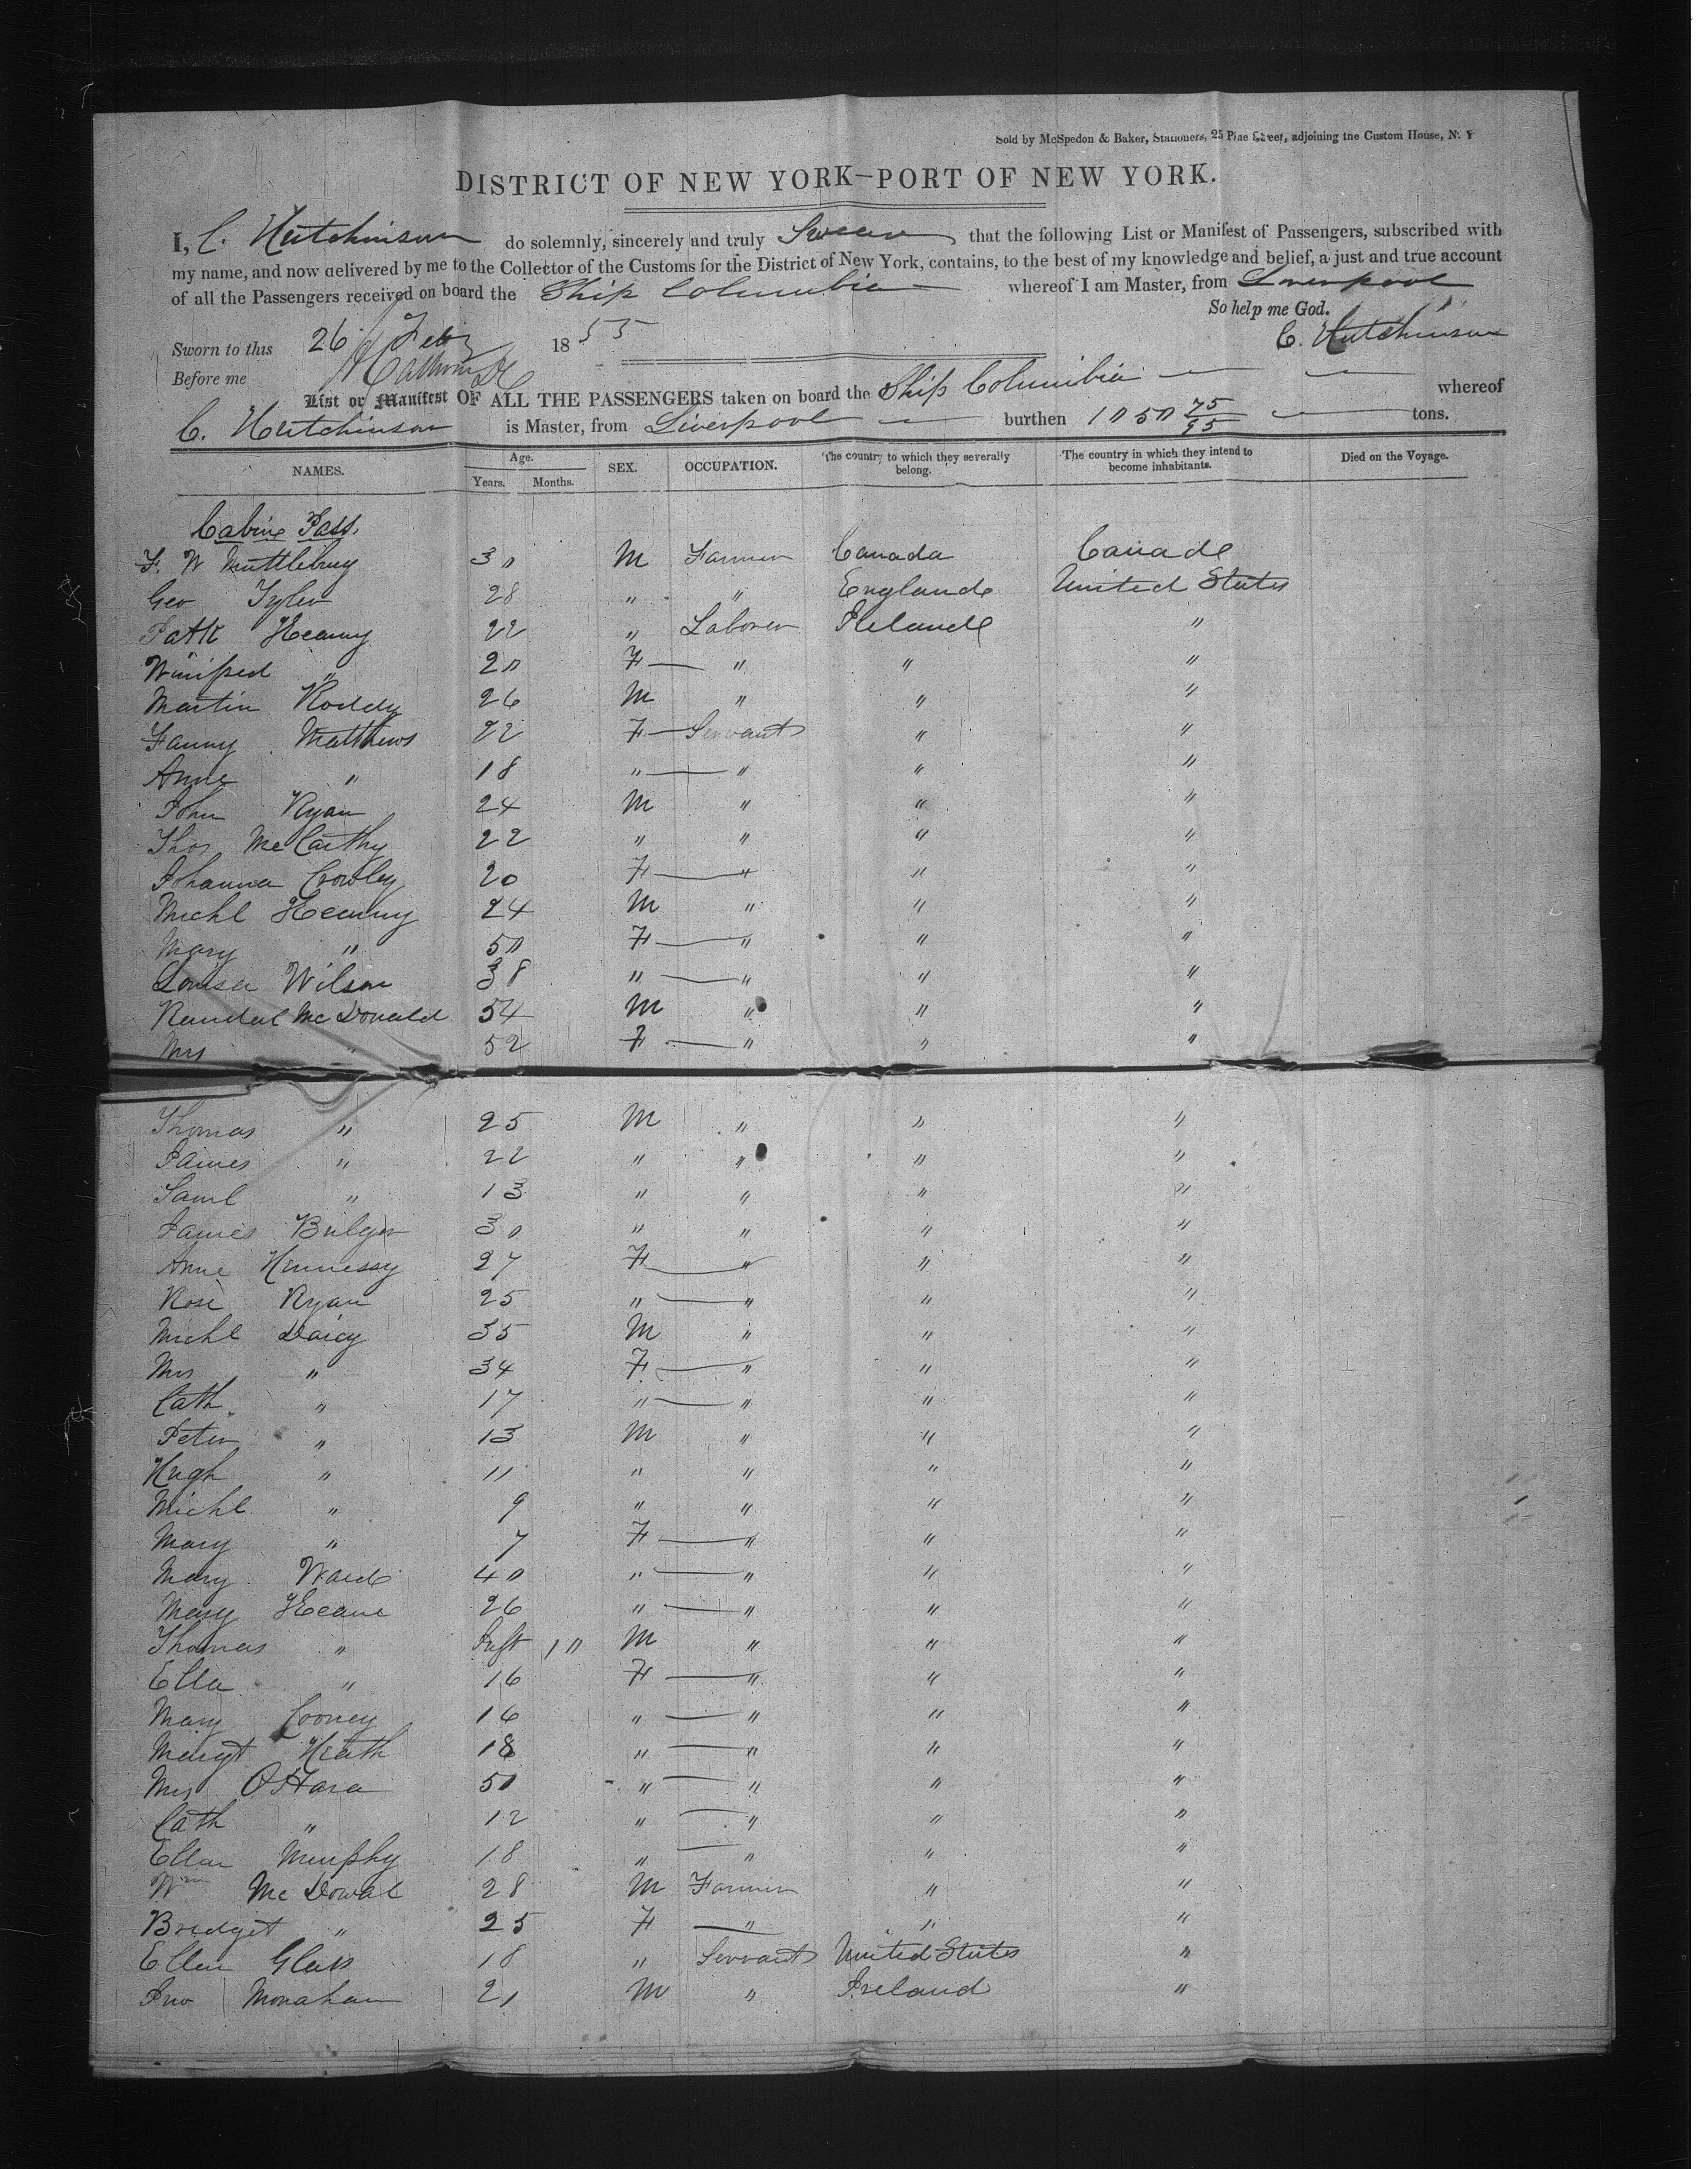 Sold by McSpedon & Baker, Stationers, 25 Pine Street, adjoining the Custom House, N. Y
DISTRICT OF NEW YORK—PORT OF NEW YORK.
I, C. Hutchinson do solemnly, sincerely and truly Swear that the following List or Manifest of Passengers, subscribed with
my name, and now delivered by me to the Collector of the Customs for the District of New York, contains, to the best of my knowledge and belief, a just and true account
of all the Passengers received on board the Ship Columbia whereof I am Master, from Liverpool
So help me God.
Sworn to this 26 Feby 1855 C. Hutchinson
Before me
List or Manifest OF ALL THE PASSENGERS taken on board the Ship Columbia whereof
C. Hutchinson is Master, from Liverpool burthen 1050 75/95 tons.
NAMES. Age. Years. Months. SEX. OCCUPATION. The country to which they severally belong. The country in which they intend to become inhabitants. Died on the Voyage.
Cabin Pass.
F. W Muttlebury 30 M Farmer Canada Canada
Geo Tyler 28 " " England United States
Patk Keanny 22 " Laborer Ireland "
Winifred " 20 F " " "
Martin Roddy 26 M " " "
Fanny Matthews 22 F Servant " "
Anne " 18 " " " "
John Ryan 24 M " " "
Thos McCarthy 22 " " " "
Johanna Crowley 20 F " " "
Michl Keanny 24 M " " "
Mary " 50 F " " "
Louisa Wilson 38 " " " "
Randal McDonald 54 M " " "
Mrs " 52 F " " "
Thomas " 25 M " " "
James " 22 " " " "
Saml " 13 " " " "
James Bulger 30 " " " "
Anne Hennessy 27 F " " "
Rose Ryan 25 " " " "
Michl Darcy 35 M " " "
Mrs " 34 F " " "
Cath " 17 " " " "
Peter " 13 M " " "
Hugh " 11 " " " "
Michl " 9 " " " "
Mary " 7 F " " "
Mary Ward 40 " " " "
Mary Keane 26 " " " "
Thomas " Inft 10 M " " "
Ella " 16 F " " "
Mary Cooney 16 " " " "
Margt Heath 18 " " " "
Mrs O'Hara 50 " " " "
Cath " 12 " " " "
Ellen Murphy 18 " " " "
Wm McDowal 28 M Farmer " "
Bridget " 25 F " " "
Ellen Glass 18 " Servant United States "
Jno Monahan 21 M " Ireland "